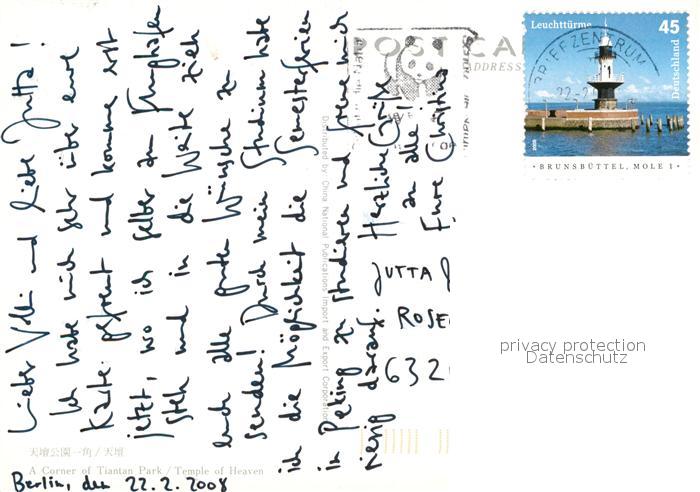 Lieber Volli und liebe Jutta!
Ich habe mich sehr über eure
Karte gefreut und komme erst
jetzt, wo ich selber am Flughafen
steh und in die Weite zieh
euch alle guten Wünsche zu
senden! Durch mein Studium habe
ich die Möglichkeit die Semesterferien
in Peking zu studieren und freue mich
riesig darauf. Herzliche Grüße
an alle!
Eure Christina
POST CA
ADDRESS
Distributed by: China National Publications Import and Export Corporation
Leuchttürme
45
Deutschland
BRIEFZENTRUM
22.-2
2005
· BRUNSBÜTTEL, MOLE 1 ·
JUTTA
ROSE
632
privacy protection
Datenschutz
天壇公園一角/天壇
A Corner of Tiantan Park / Temple of Heaven
Berlin, den 22.2.2008